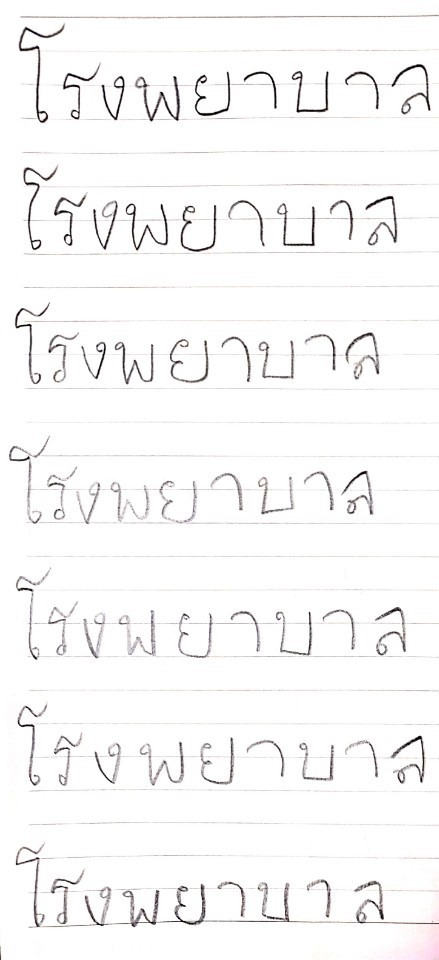 โรงพยาบาล
โรงพยาบาล
โรงพยาบาล
โรงพยาบาล
โรงพยาบาล
โรงพยาบาล
โรงพยาบาล